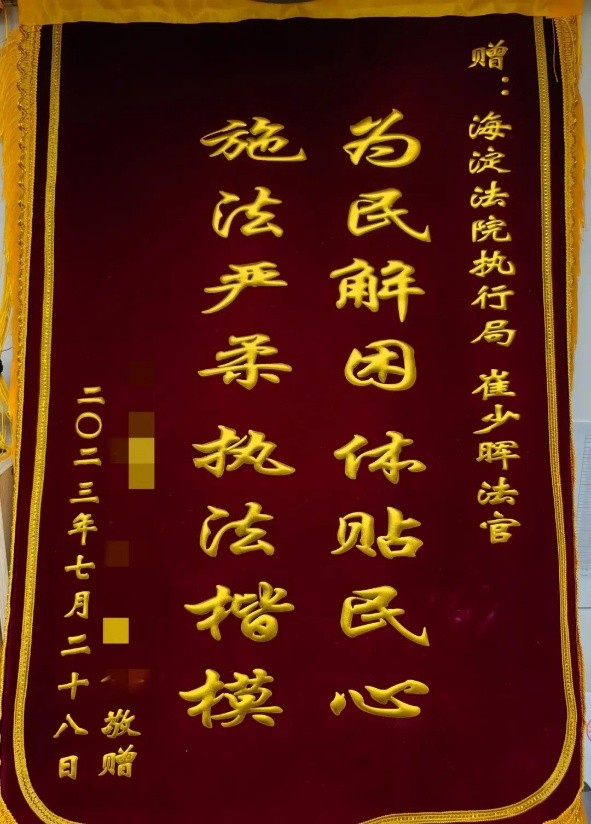 赠：海淀法院执行局 崔少晖法官
为民解困体贴民心
施法严柔执法楷模
敬赠
二〇二三年七月二十八日